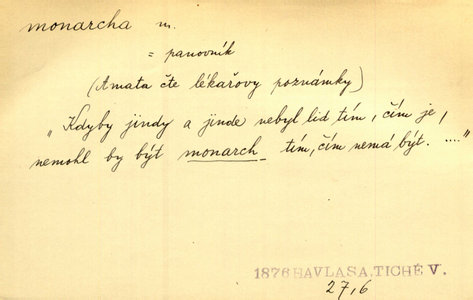 monarcha m.
= panovník
(Amata čte lékařovy poznámky)
„Kdyby jindy a jinde nebyl lid tím, čím je,
nemohl by být monarch tím, čím nemá být. ...."
1876 HAVLASA, TICHÉ V.
27,6